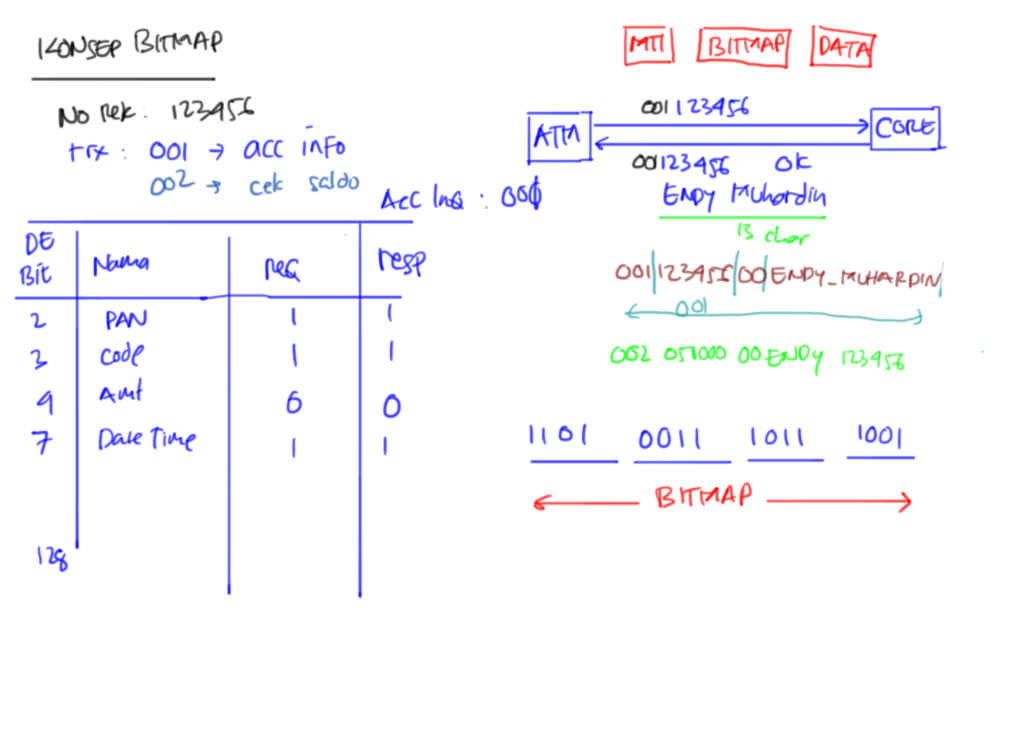 KONSEP BITMAP
No rek: 123456
trx: 001 → acc info
002 → cek saldo
Acc Inq: 000
DE
Bit Nama req resp
2 PAN 1 1
3 Code 1 1
4 Amt 0 0
7 Date Time 1 1
128
MTI BITMAP DATA
001123456
ATM CORE
00123456 OK
ENDY MUhardin
13 char
001|123456|00|ENDY_MUHARDIN|
001
002 051000 00 ENDY 123456
1101 0011 1011 1001
BITMAP